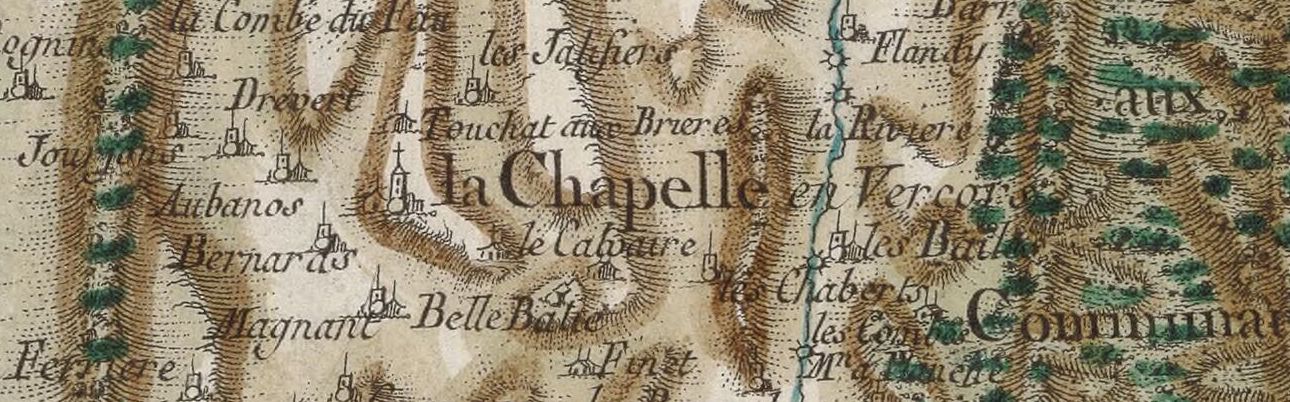 la Combe du Fau
Barr
ognins
les Jalifiers
Flandy
Drevert
aux,
Touchat aux Brieres
la Riviere
Jourdans
la Chapelle en Vercors
Aubanos
le Calvaire
les Baile
Bernards
les Chaberts
Magnant
Belle Balte
les Combes
Communau
Ferriere
Finet